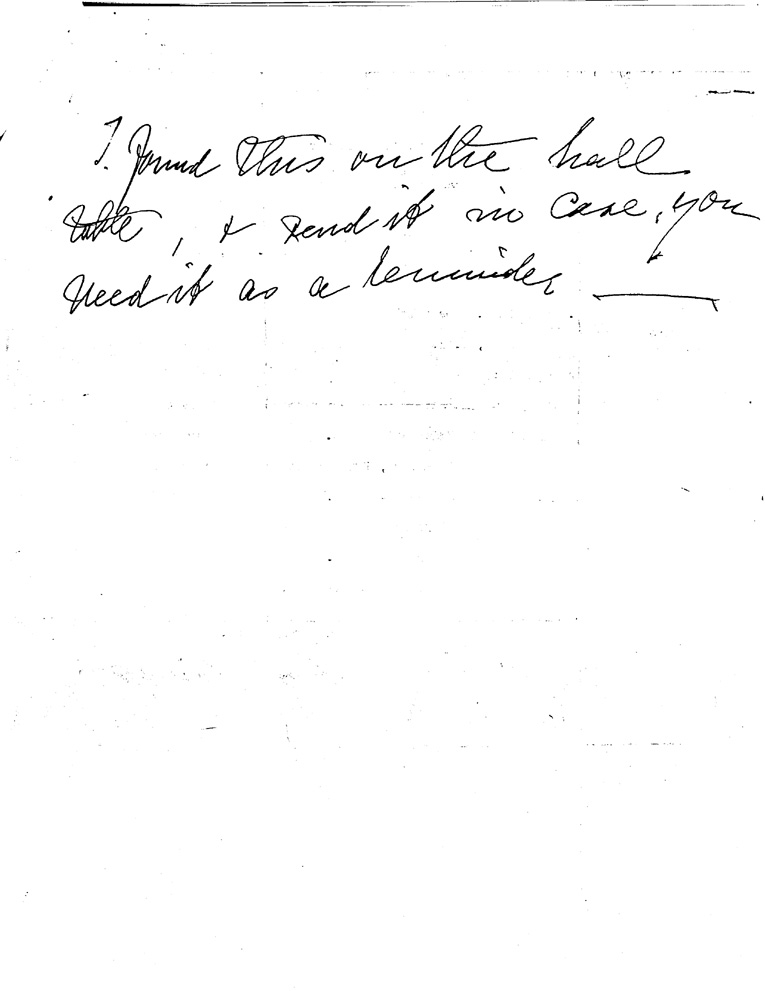 I found this on the hall
table, & send it in case, you
need it as a reminder ——